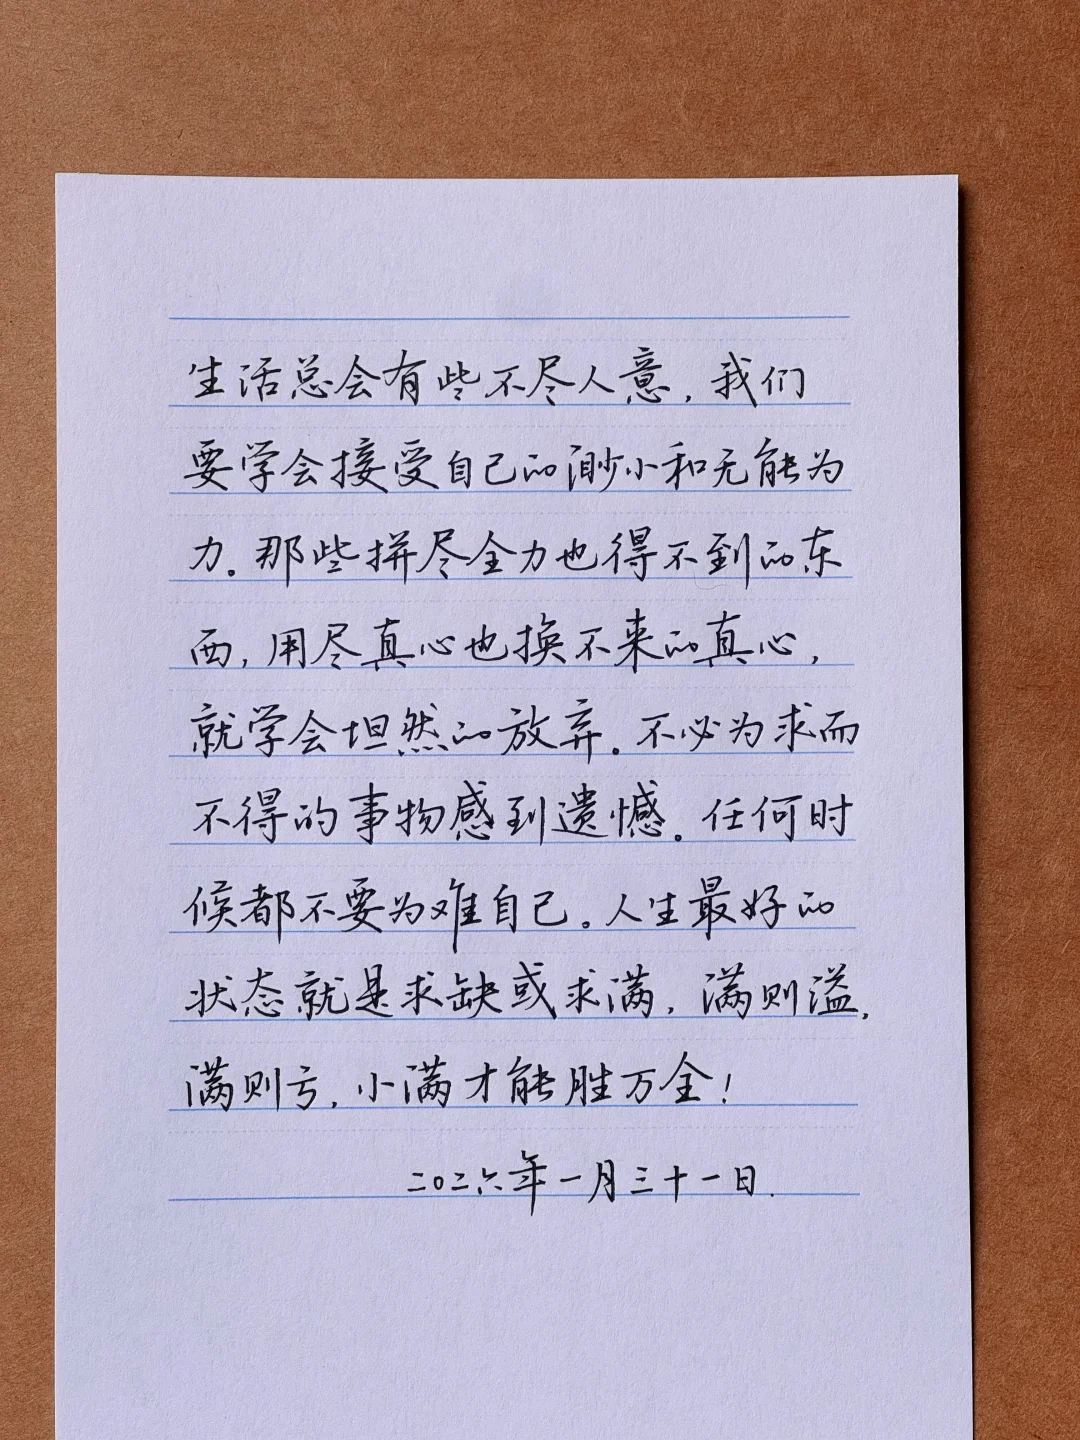 生活总会有些不尽人意，我们
要学会接受自己的渺小和无能为
力。那些拼尽全力也得不到的东
西，用尽真心也换不来的真心，
就学会坦然的放弃。不必为求而
不得的事物感到遗憾。任何时
候都不要为难自己。人生最好的
状态就是求缺或求满，满则溢，
满则亏，小满才能胜万全！
二〇二六年一月三十一日.